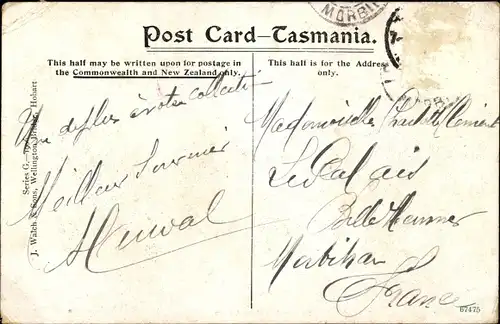 MORBI
Post Card—Tasmania.
This half may be written upon for postage in
the Commonwealth and New Zealand only.
This half is for the Address
only.
Un de plus à votre collection
Meilleur Souvenir
Series G.
J. Walch & Sons, Wellington Bridge, Hobart
Mademoiselle Clément
Le Palais
Belle Isle en Mer
Morbihan
France
67475